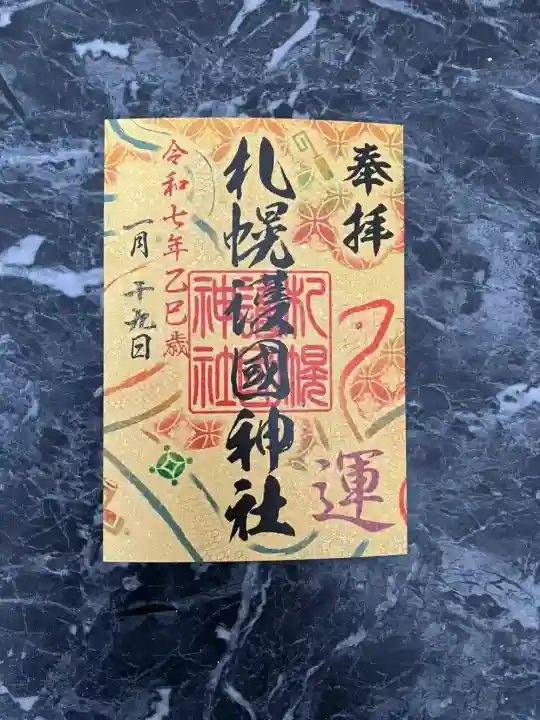 奉拝
運
札幌護國神社
札幌護國神社
令和七年乙巳歳
一月十九日